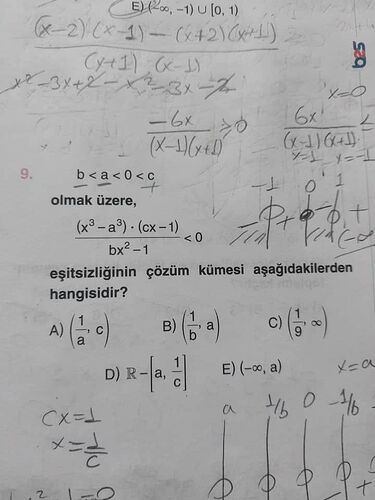 E) (-∞, -1) ∪ [0, 1)
(x-2)(x-1) - (x+2)(x+1)
(x+1) (x-1)
x² - 3x + 2 - x² - 3x - 2
x=0
-6x ≥ 0
(x-1)(x+1)
6x
(x-1)(x+1)
x=1 x=-1
-1 0 1
9. b < a < 0 < c
+
olmak üzere,
(x³ – a³) · (cx – 1)
bx² – 1
< 0
eşitsizliğinin çözüm kümesi aşağıdakilerden
hangisidir?
A) (1/a, c) B) (1/b, a) C) (1/9, ∞)
D) ℝ – [a, 1/c] E) (–∞, a)
x=a
cx=1
x=1/c
a 1/b 0 -1/b